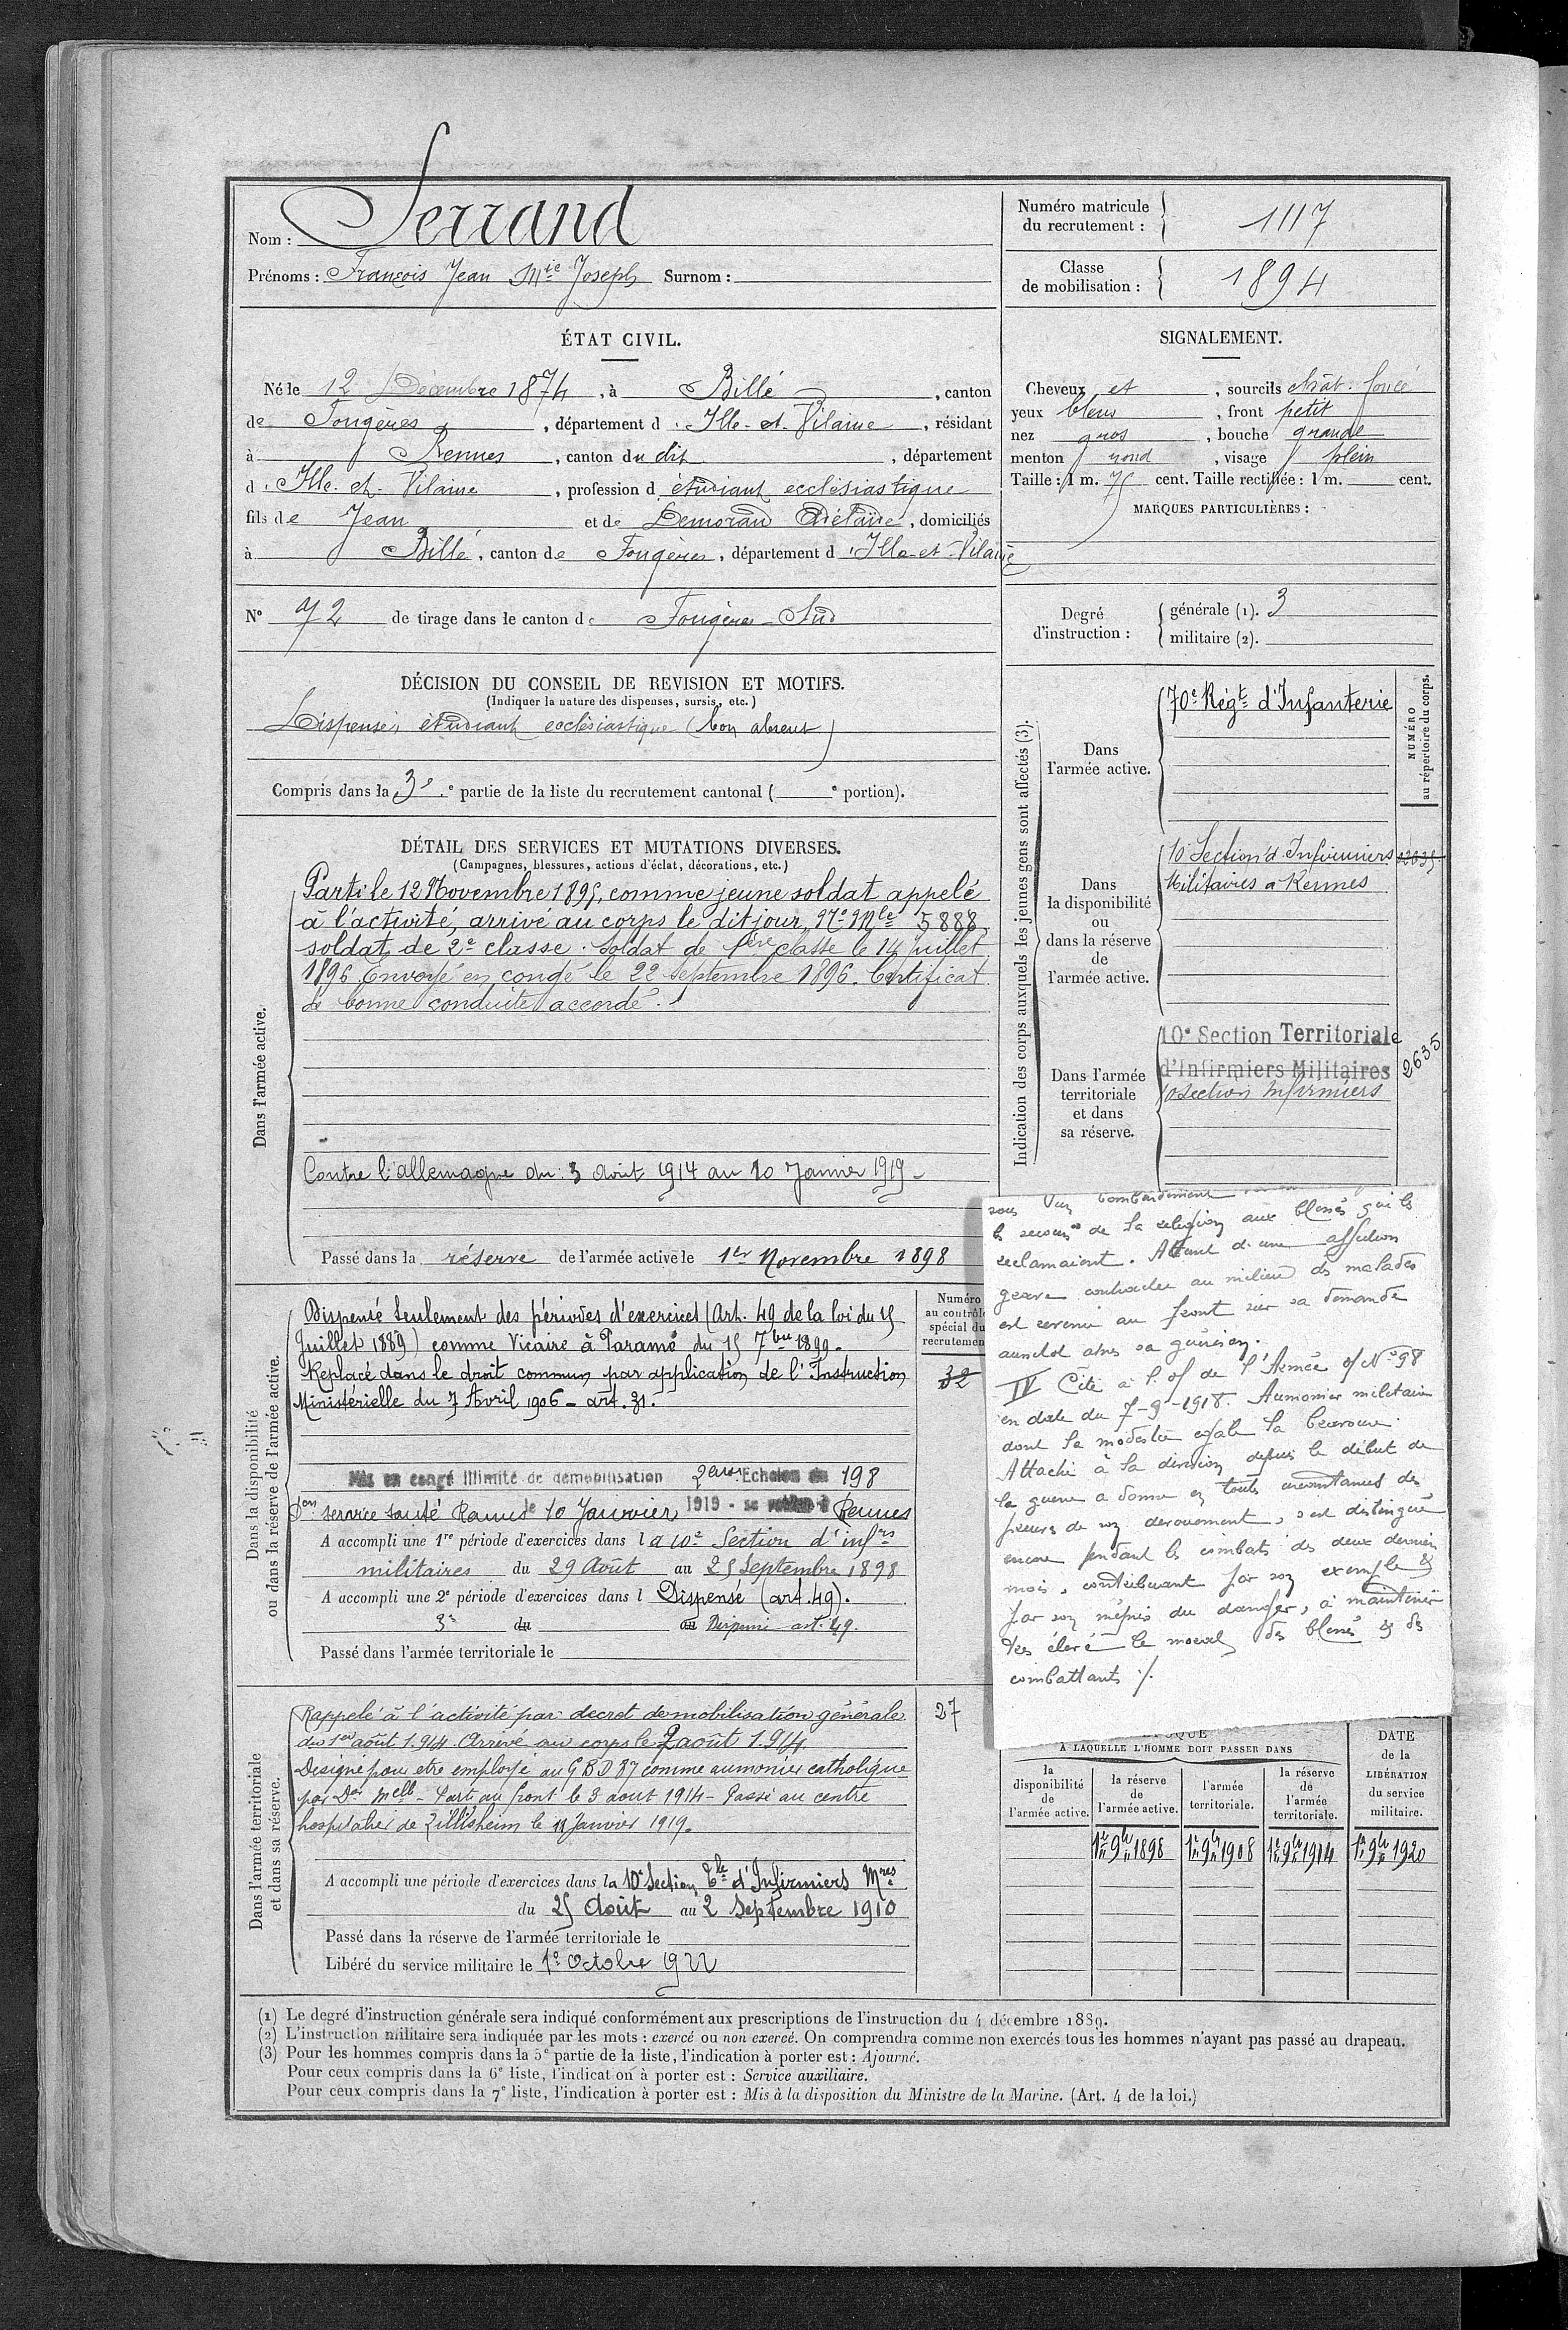 Nom : Serrand
Prénoms : François Jean Mie Joseph Surnom :
Numéro matricule
du recrutement : 1117
Classe
de mobilisation : 1894
ÉTAT CIVIL.
Né le 12 Décembre 1874, à Billé, canton
de Fougères, département d'Ille-et-Vilaine, résidant
à Rennes, canton du dit, département
d'Ille-et-Vilaine, profession d'étudiant ecclésiastique
fils de Jean et de Demorand Adélaïde, domiciliés
à Billé, canton de Fougères, département d'Ille-et-Vilaine
N° 72 de tirage dans le canton de Fougères-Sud
SIGNALEMENT.
Cheveux et, sourcils chât. foncé
yeux bleus, front petit
nez gros, bouche grande
menton rond, visage plein
Taille : 1 m. 75 cent. Taille rectifiée : 1 m. cent.
MARQUES PARTICULIÈRES :
Degré
d'instruction :
générale (1). 3
militaire (2).
DÉCISION DU CONSEIL DE REVISION ET MOTIFS.
(Indiquer la nature des dispenses, sursis, etc.)
Dispensé, étudiant ecclésiastique (bon absent)
Compris dans la 3e e partie de la liste du recrutement cantonal ( e portion).
DÉTAIL DES SERVICES ET MUTATIONS DIVERSES.
(Campagnes, blessures, actions d'éclat, décorations, etc.)
Dans l'armée active.
Parti le 12 Novembre 1895, comme jeune soldat appelé
à l'activité, arrivé au corps le dit jour, No Mle 5888
soldat de 2e classe. Soldat de 1ère classe le 14 Juillet
1896 Envoyé en congé le 22 septembre 1896. Certificat
de bonne conduite accordé.
Contre l'allemagne du 3 août 1914 au 10 Janvier 1919 -
Passé dans la réserve de l'armée active le 1er Novembre 1898
Indication des corps auxquels les jeunes gens sont affectés (3).
NUMÉRO
au répertoire du corps.
Dans
l'armée active.
70e Régt d'Infanterie
Dans
la disponibilité
ou
dans la réserve
de
l'armée active.
10 Section d'Infirmiers
Militaires à Rennes
Dans l'armée
territoriale
et dans
sa réserve.
10e Section Territoriale
d'Infirmiers Militaires
10 section Infirmiers
2635
sous un bombardement
le secours de la religion aux blessés qui le
reclamaient. Atteint d'une affection
grave contractée au milieu des malades
est revenu au front sur sa demande
aussitot après sa guérison.
IV Cité à l'o/ de l'Armée o/ N° 98
en date du 7-9-1918. Aumonier militaire
dont la modestie égale la bravoure.
Attaché à la division depuis le début de
la guerre a donné en toutes circonstances des
preuves de son dévouement, s'est distingué
encore pendant les combats des deux derniers
mois, contribuant par son exemple &
par son mépris du danger, à maintenir
très élevé le moral des blessés & des
combattants ./.
Dans la disponibilité
ou dans la réserve de l'armée active.
Numéro
au contrôle
spécial du
recrutement
32
Dispensé seulement des périodes d'exercices (Art. 49 de la loi du 15
Juillet 1889) comme Vicaire à Paramé du 15 7bre 1899.
Replacé dans le droit commun par application de l'Instruction
Ministérielle du 7 Avril 1906 - art. 31.
Mis en congé illimité de démobilisation 2eme Echelon 198
Don service santé Rennes le 10 Janvier 1919 - se retire à Rennes
A accompli une 1re période d'exercices dans la 10e Section d'infrs
militaires du 29 Août au 25 Septembre 1898
A accompli une 2e période d'exercices dans l Dispensé (art. 49).
3e du au Dispensé art. 49.
Passé dans l'armée territoriale le
Dans l'armée territoriale
et dans sa réserve.
27
Rappelé à l'activité par decret de mobilisation générale
du 1er août 1914. Arrivé au corps le 2 août 1914
Désigné pour etre employé au GBD 87 comme aumonier catholique
par Don Melle - Parti au front le 3 aout 1914 - Passé au centre
hospitalier de Zillisheim le 11 Janvier 1919.
A accompli une période d'exercices dans la 10e Section Tle d'Infirmiers Mres
du 25 Août au 2 Septembre 1910
Passé dans la réserve de l'armée territoriale le
Libéré du service militaire le 1e Octobre 1922
ÉPOQUE
À LAQUELLE L'HOMME DOIT PASSER DANS
la
disponibilité
de
l'armée active.
la réserve
de
l'armée active.
l'armée
territoriale.
la réserve
de
l'armée
territoriale.
DATE
de la
LIBÉRATION
du service
militaire.
1er 9bre 1898 1er 9bre 1908 1er 9bre 1914 1er 9bre 1920
(1) Le degré d'instruction générale sera indiqué conformément aux prescriptions de l'instruction du 4 décembre 1889.
(2) L'instruction militaire sera indiquée par les mots : exercé ou non exercé. On comprendra comme non exercés tous les hommes n'ayant pas passé au drapeau.
(3) Pour les hommes compris dans la 5e partie de la liste, l'indication à porter est : Ajourné.
Pour ceux compris dans la 6e liste, l'indication à porter est : Service auxiliaire.
Pour ceux compris dans la 7e liste, l'indication à porter est : Mis à la disposition du Ministre de la Marine. (Art. 4 de la loi.)